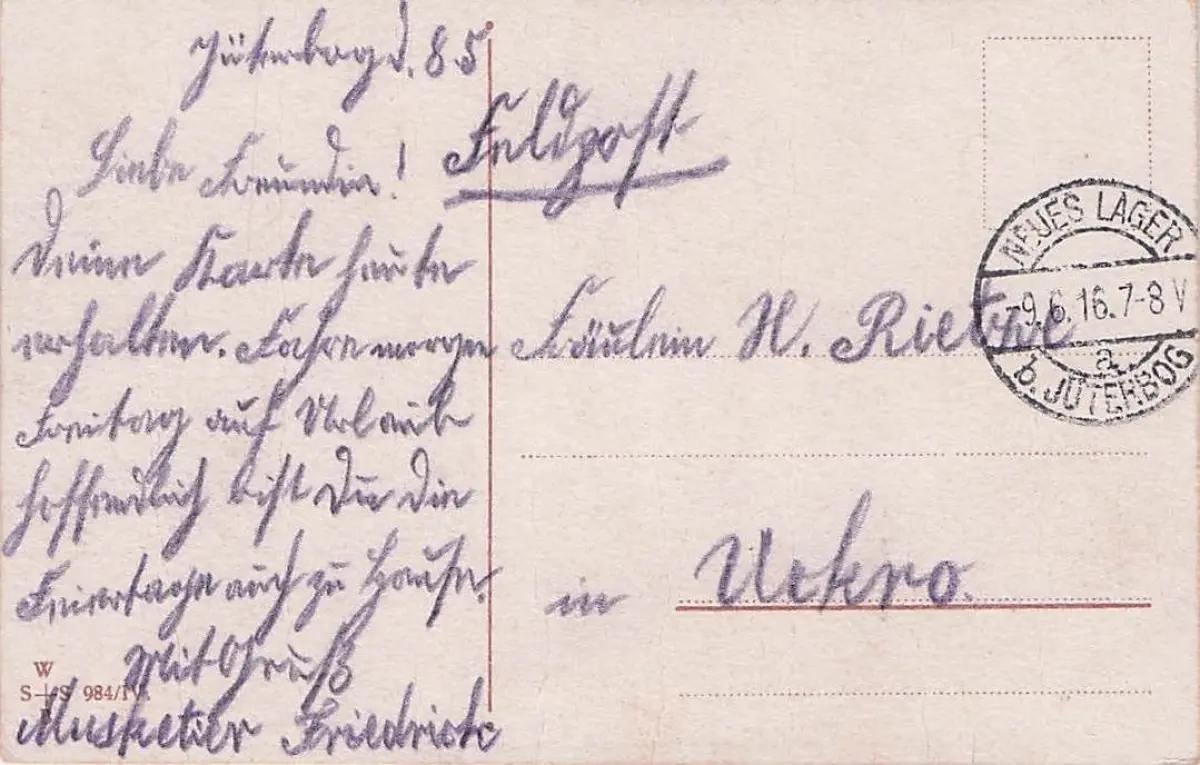 Jüterbog d. 8.5
Feldpost
Liebe Freundin!
Deine Karte heute
erhalten. Fahre morgen
Freitag auf Urlaub
hoffendlich bist Du die
Feiertage auch zu Hause.
Mit Gruß
Musketier Friedrich
Fräulein H.
in Uckro.
NEUES LAGER
-9.6.16.7-8V
a
b. JÜTERBOG
W
S+S 984/IV.